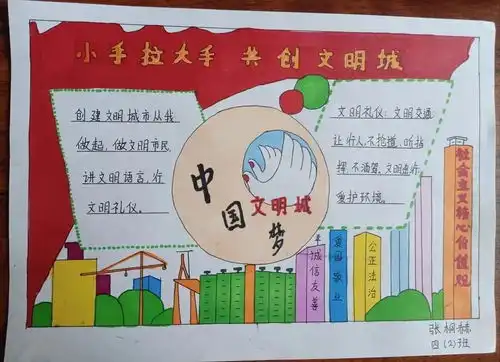 小手拉大手 共创文明城
创建文明城市从我
做起，做文明市民
讲文明语言，行
文明礼仪。
文明礼仪：文明交通
让行人，不抢道，听指
挥，不酒驾，文明出行
爱护环境。
中国梦
文明城
诚信友善
爱国敬业
公正法治
社会主义核心价值观
张桐赫
四(2)班